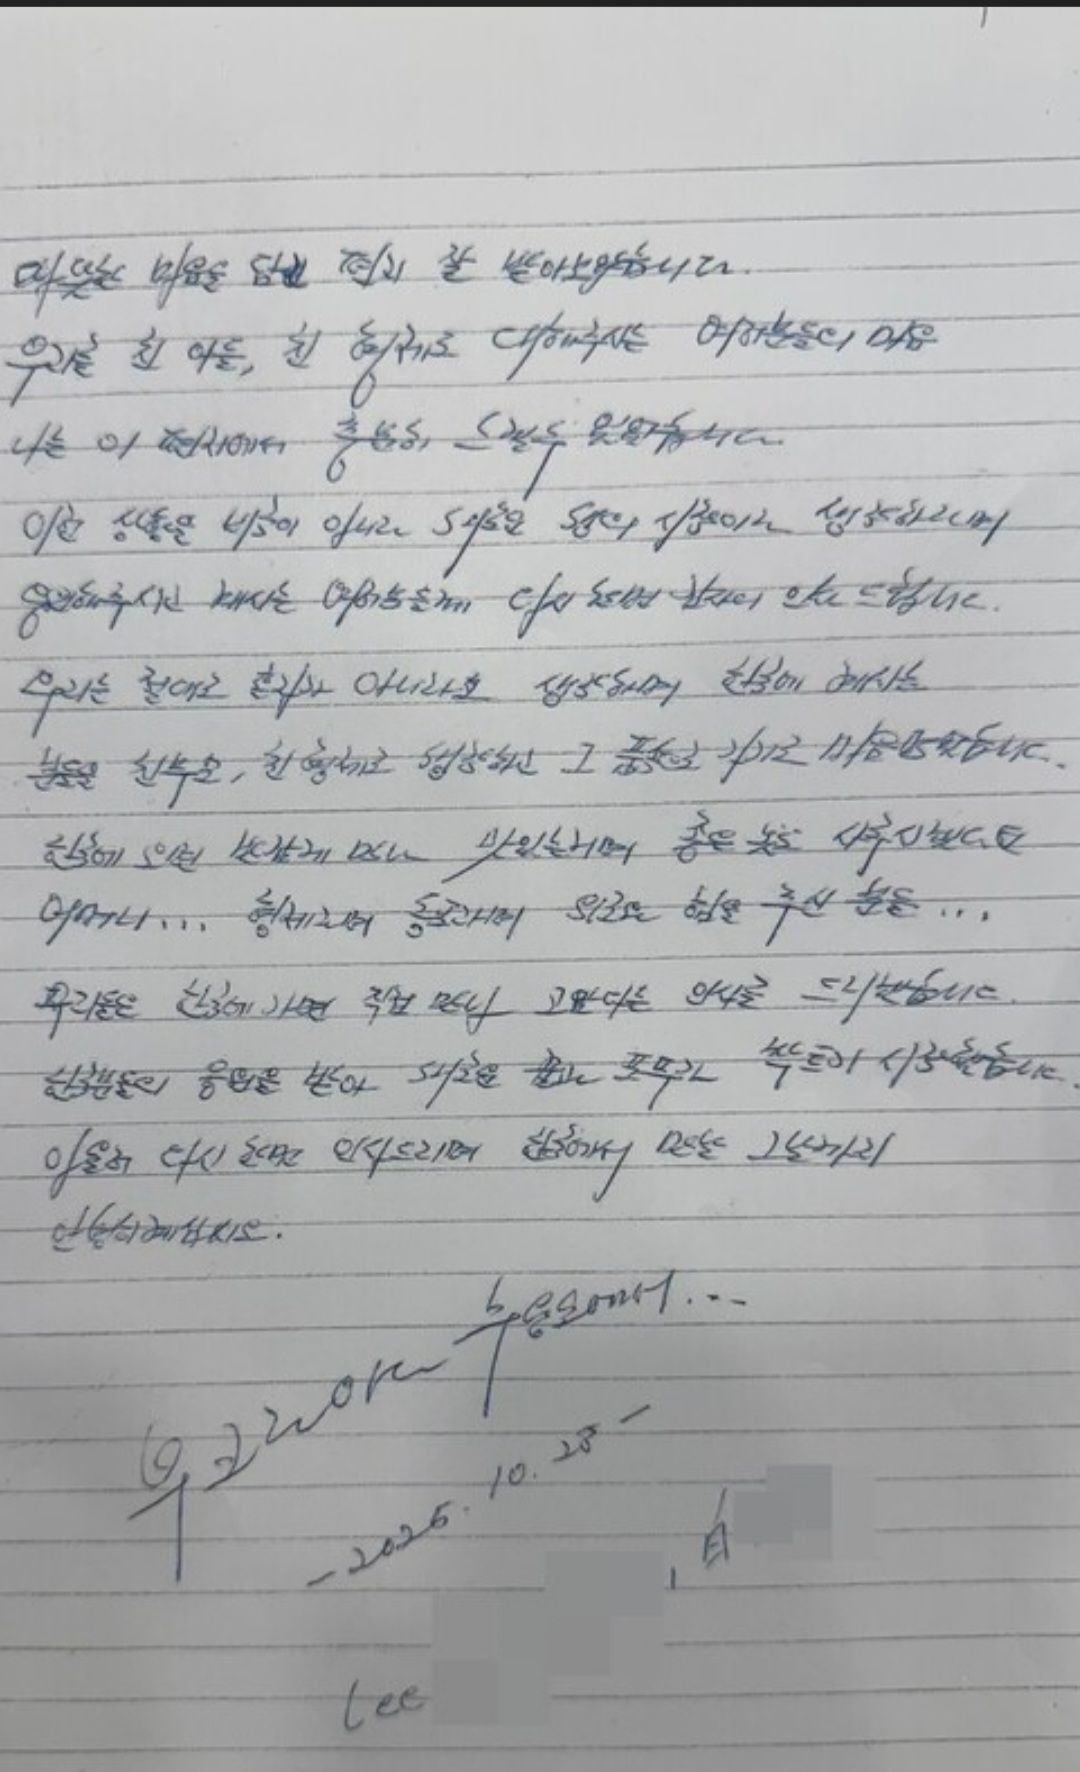 따뜻한 마음을 담은 편지 잘 받아보았습니다.
우리를 친 아들, 친 형제로 대해주시는 여러분들의 마음
나는 이 편지에서 충분히 느낄수 있었습니다.
이런 상황을 비극이 아니라 새로운 삶의 시작이라 생각하라며
응원해주시고 계시는 여러분들께 다시 한번 감사의 인사 드립니다.
우리는 절대로 혼자가 아니라고 생각하며 한국에 계시는
분들을 친부모, 친형제로 생각하고 그 품속으로 가기로 마음먹었습니다.
한국에 오면 반갑게 만나 맛있는 좋은 옷도 사주시겠다던
어머니... 형제라며 동포라며 위로와 힘을 주신 분들...
우리들은 한국에 가면 직접 만나 고맙다는 인사를 드리겠습니다.
한국분들의 응원을 받아 새로운 꿈과 포부가 싹트기 시작했습니다.
이율러 다시 한번 인사드리며 한국에서 만날 그날까지
안녕히계십시오.
우크라이나 수용소에서...
-2025. 10. 28-
, 白
Lee